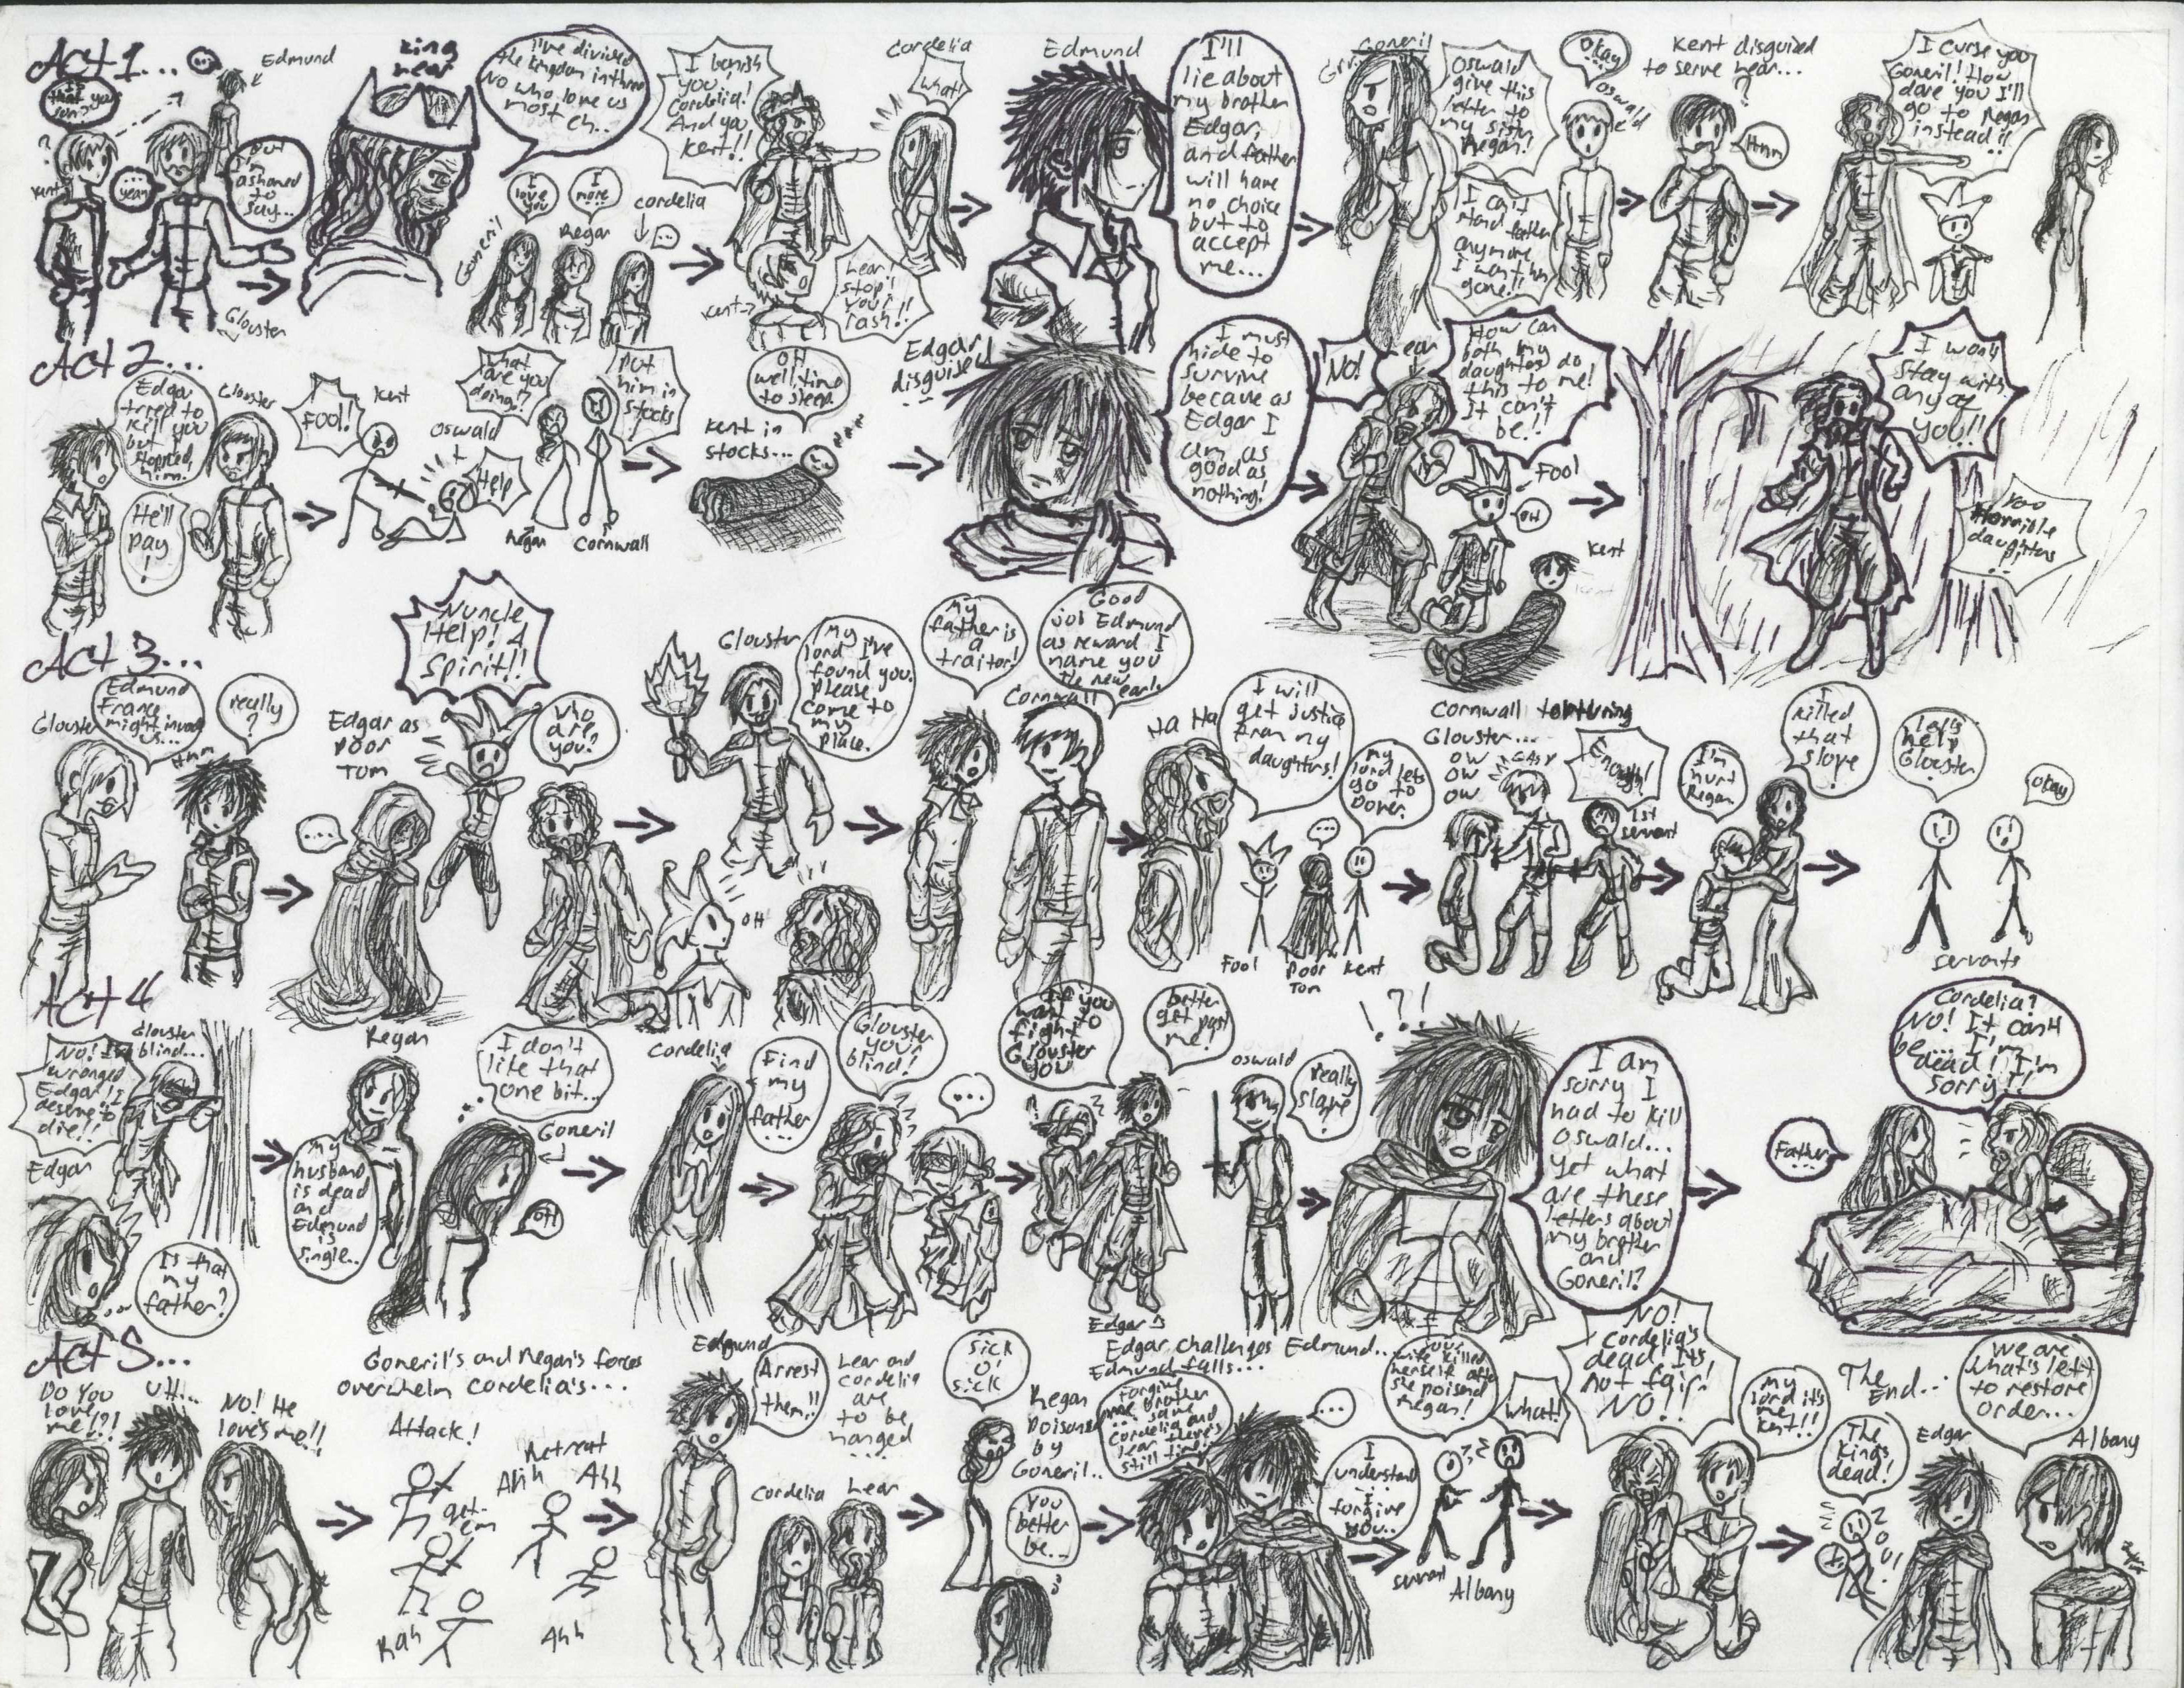 Act 1...
...
Edmund
Is
that your
son?
?
Kent
...
yeah
but
I'm
ashamed
to
say...
Glouster
King
Lear
I've divided
the kingdom in three
No who love us
most
eh..
I
love
you
Goneril
I
more
Regan
Cordelia
...
I banish
you!
Cordelia!
And you
Kent!!
Cordelia
What!
Kent
Lear!
stop!
Your
rash!!
Edmund
I'll
lie about
my brother
Edgar,
and father
will have
no choice
but to
accept
me...
Goneril
Grr
Oswald
give this
letter to
my sister
Regan!
I can't
stand father
anymore
I want him
gone!!
Okay
Oswald
Kent disguised
to serve Lear...
Hmm
I curse you
Goneril! How
dare you I'll
go to Regan
instead!!
Act 2...
Edgar
tried to
kill you
but I
stopped
him.
Glouster
He'll
pay
!
FOOL!
Kent
Oswald
Help
What
are you
doing!?
Put
him in
stocks
!
Regan
Cornwall
Kent in
stocks...
Oh
well time
to sleep.
zzz
Edgar
disguised
...
I must
hide to
survive
because as
Edgar I
am as
good as
nothing!
NO!
Lear
How can
both my
daughters do
this to me!
It can't
be!!
Fool
OH
Kent
I wont
stay with
any of
you!!
You
Horrible
daughters
!!
Act 3...
Glouster
Edmund
France
might invade
us...
Hmm
really
?
Edgar as
Poor
Tom
...
Nuncle
Help! A
Spirit!!
Who
are
you?
Glouster
My
lord I've
found you.
please
come to
my
place.
OH
My
father is
a
traitor!
Good
job Edmund
as reward I
name you
the new
earl.
Cornwall
Ha Ha
I will
get justice
from my
daughters!
My
lord lets
go to
Dover.
...
Fool
Poor
Tom
Kent
Cornwall torturing
Glouster...
OW
OW
OW
Enough!
1st
servant
I'm
hurt
Regan
I
killed
that
slave
!
lets
help
Glouster
.
okay
servants
Act 4
Glouster
blind...
NO! I've
wronged
Edgar! I
deserve to
die!!
Edgar
Is that
my
father?
Regan
My
husband
is dead
and
Edmund
is
single..
I don't
like that
one bit...
Goneril
OH
Cordelia
Find
my
father
...
Glouster
your
blind!
...
If you
want to
fight
Glouster
you
better
get past
me!
Edgar
Oswald
really
slave
?
!?!
I am
sorry I
had to kill
Oswald...
Yet what
are these
letters about
my brother
and
Goneril?
Father
...
Cordelia?
NO! It can't
be... I'm
dead! I'm
sorry!!
Act 5...
Do You
Love
me!?!
Uh...
No! He
love's me!!
Goneril's and Regan's forces
overwhelm Cordelia's...
Attack!
get
em
Rah
Retreat
Ahh
Ahh
Ahh
Edmund
Arrest
them!!
Lear and
Cordelia
are
to be
hanged
...
Cordelia
Lear
Sick
O!
Sick
Regan
poisoned
by
Goneril..
You
better
be...
Edgar challenges Edmund..
Edmund falls...
Forgive
me brother
... save
Cordelia and
Lear there's
still time!
...
I
understand
I
forgive
you..
Your
wife killed
herself after
she poisend
Regan!
What!
servant
Albany
NO!
Cordelia's
dead Its
not fair!
NO!!
My
lord it's
me
Kent!!
The
End...
The
Kings
dead!
NO!
Edgar
We are
what's left
to restore
order...
Albany